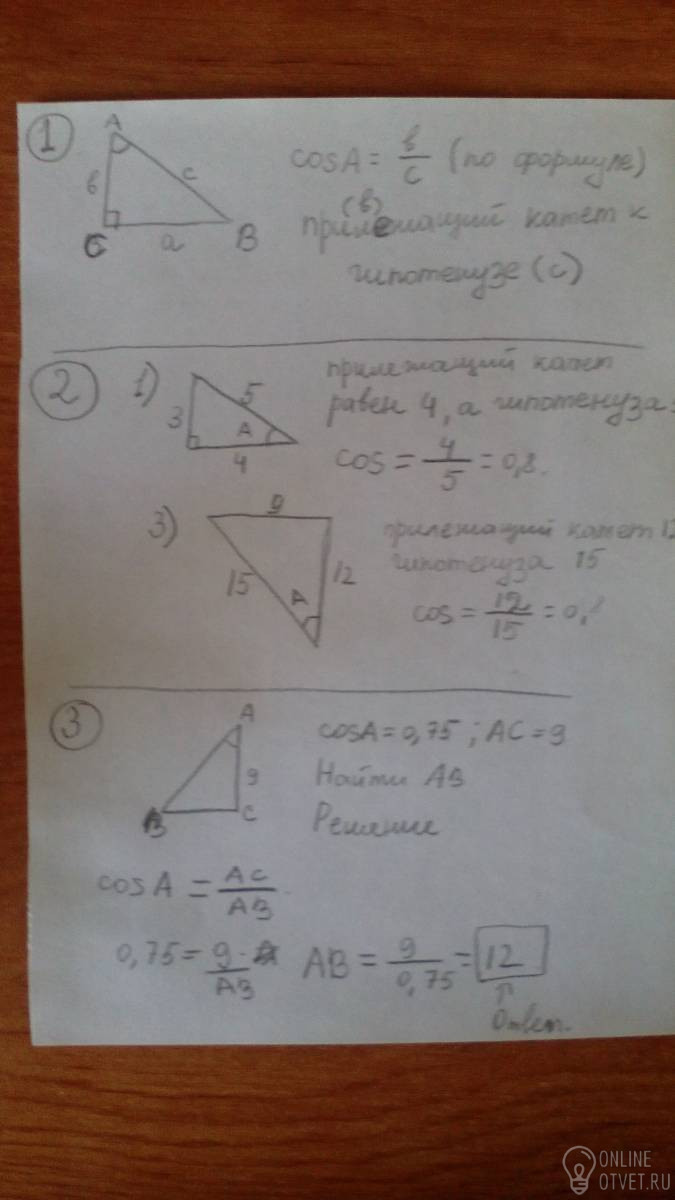 1
A
в
c
C
a
B
cosA = в/c (по формуле)
(в)
прилежащий катет к
гипотенузе (c)
2
1)
3
5
A
4
прилежащий катет
равен 4, а гипотенуза
cos = 4/5 = 0,8.
3)
9
15
12
A
прилежащий катет
гипотенуза 15
cos = 12/15 = 0,
3
A
9
B
C
cosA = 0,75 ; AC = 9
Найти AB
Решение
cosA = AC/AB
0,75 = 9/AB AB = 9/0,75 = 12
↑
Ответ.
ONLINE
OTVET.RU